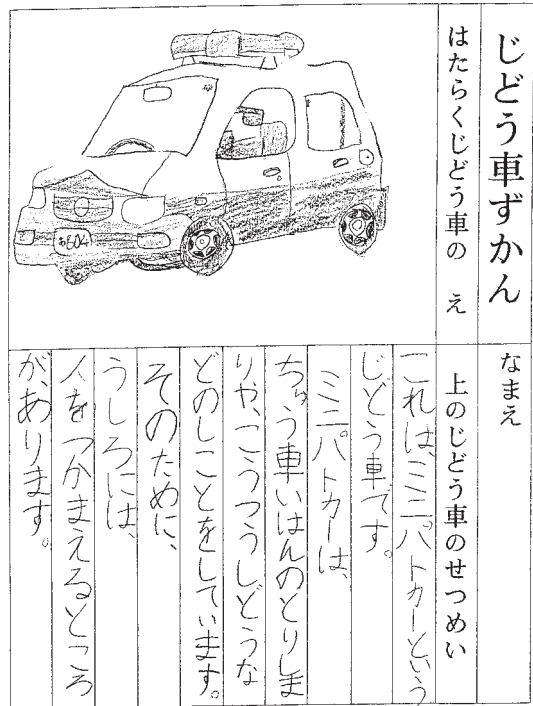 じどう車ずかん
なまえ
はたらくじどう車の え
上のじどう車のせつめい
これは、ミニパトカーという
じどう車です。
ミニパトカーは、
ちゅう車いはんのとりしま
りや、こうつうしどうな
どのしことをしています。
そのために、
うしろには、
人をつかまえるところ
が、あります。
あ604